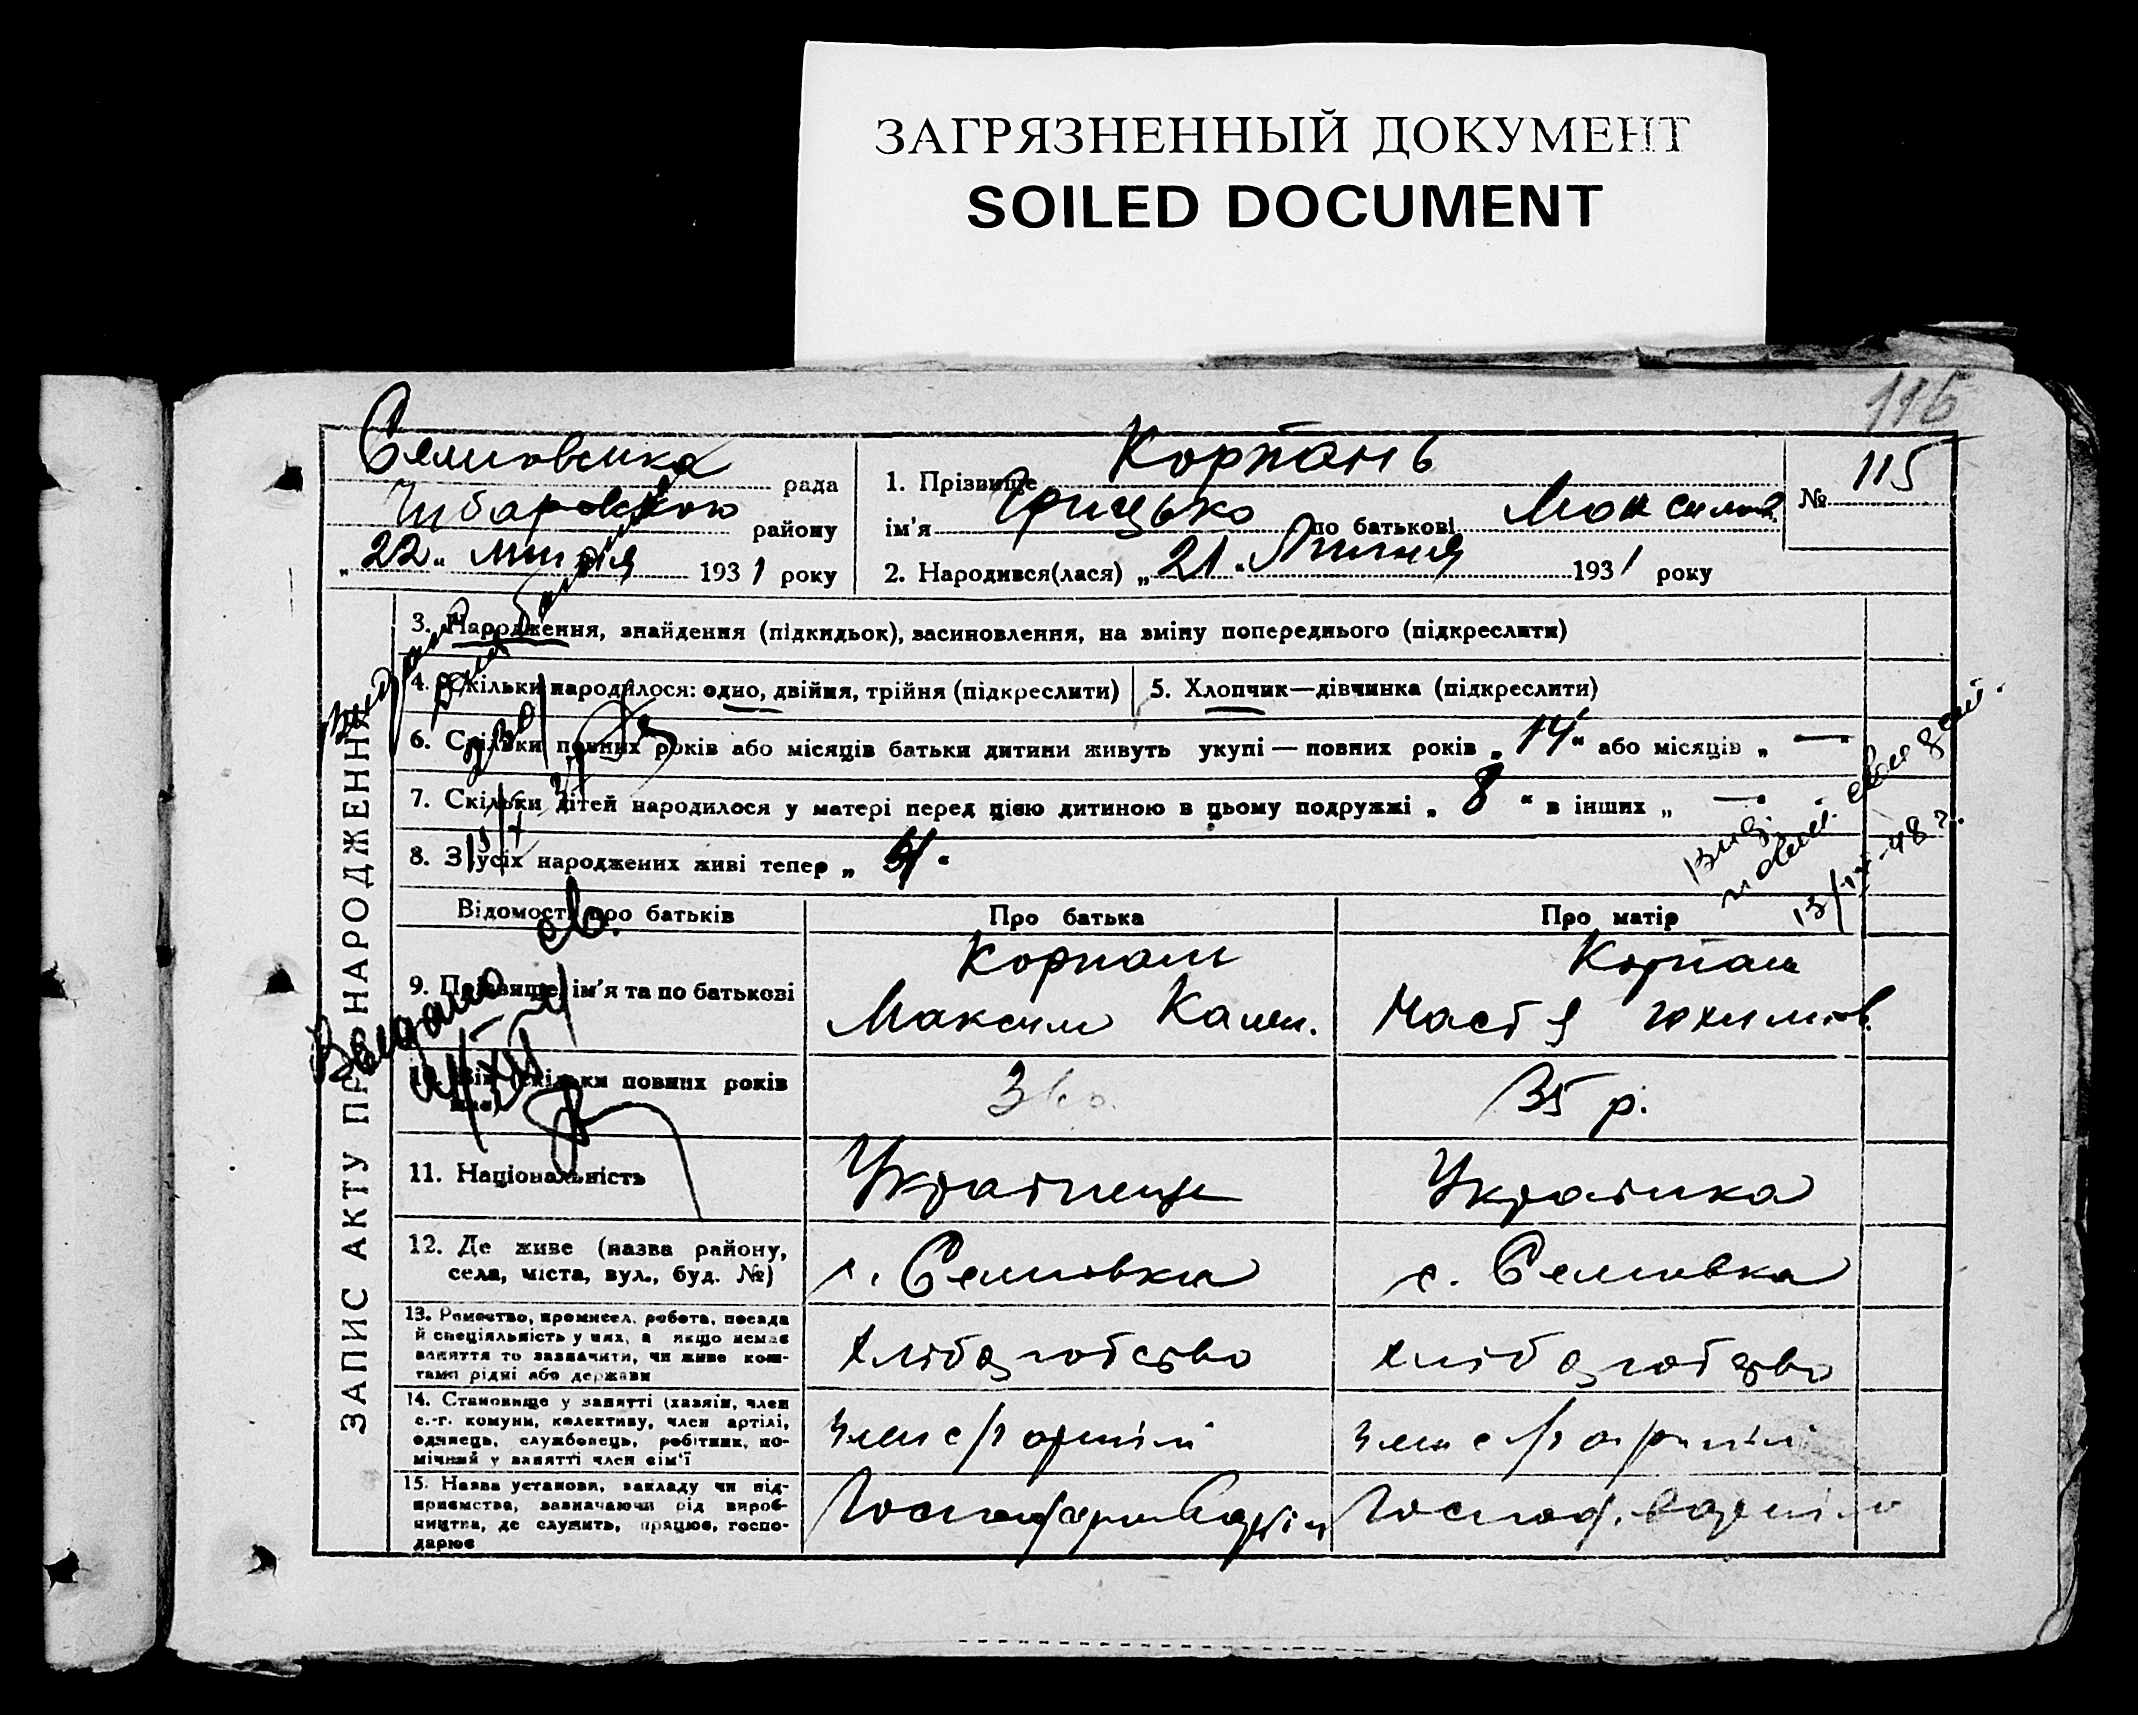 ЗАГРЯЗНЕННЫЙ ДОКУМЕНТ
SOILED DOCUMENT
116
Семеновска рада
Чубаревского району
„ 22 “ липня 1931 року
1. Прізвище Корпань
ім'я Грицько по батькові Максимов.
2. Народився(лася) „ 21 “ Липня 1931 року
№ 115
ЗАПИС АКТУ ПРО НАРОДЖЕННЯ
3. Народження, знайдення (підкидьок), засиновлення, на зміну попереднього (підкреслити)
4. Скільки народилося: одно, двійня, трійня (підкреслити)
5. Хлопчик—дівчинка (підкреслити)
6. Скільки повних років або місяців батьки дитини живуть укупі — повних років „ 14 “ або місяців „ — “
7. Скільки дітей народилося у матері перед цією дитиною в цьому подружжі „ 8 “ в інших „ —
8. З усіх народжених живі тепер „ “
13/IV-48 г.
Відомості про батьків
Про батька
Про матір
9. Прізвище, ім'я та по батькові
Корпань
Максим Калин.
Корпань
Настя Юхимов.
Выдано св.
10. Вік (скільки повних років має)
35 р.
11. Національність
Українець
Українка
12. Де живе (назва району, села, міста, вул., буд. №)
с. Семеновка
с. Семеновка
13. Ремество, промисел, робота, посада
й спеціяльність у них, а якщо немає
заняття то зазначити, чи живе кош-
тами рідні або держави
хліборобство
хліборобство
14. Становище у занятті (хазяїн, член
с.-г. комуни, колективу, член артілі,
одинець, службовець, робітник, по-
мічний у занятті член сім'ї
член с/г артілі
член с/г артілі
15. Назва установи, закладу чи під-
приємства, зазначаючи рід вироб-
ництва, де служить, працює, госпо-
дарює
Господ. в артілі